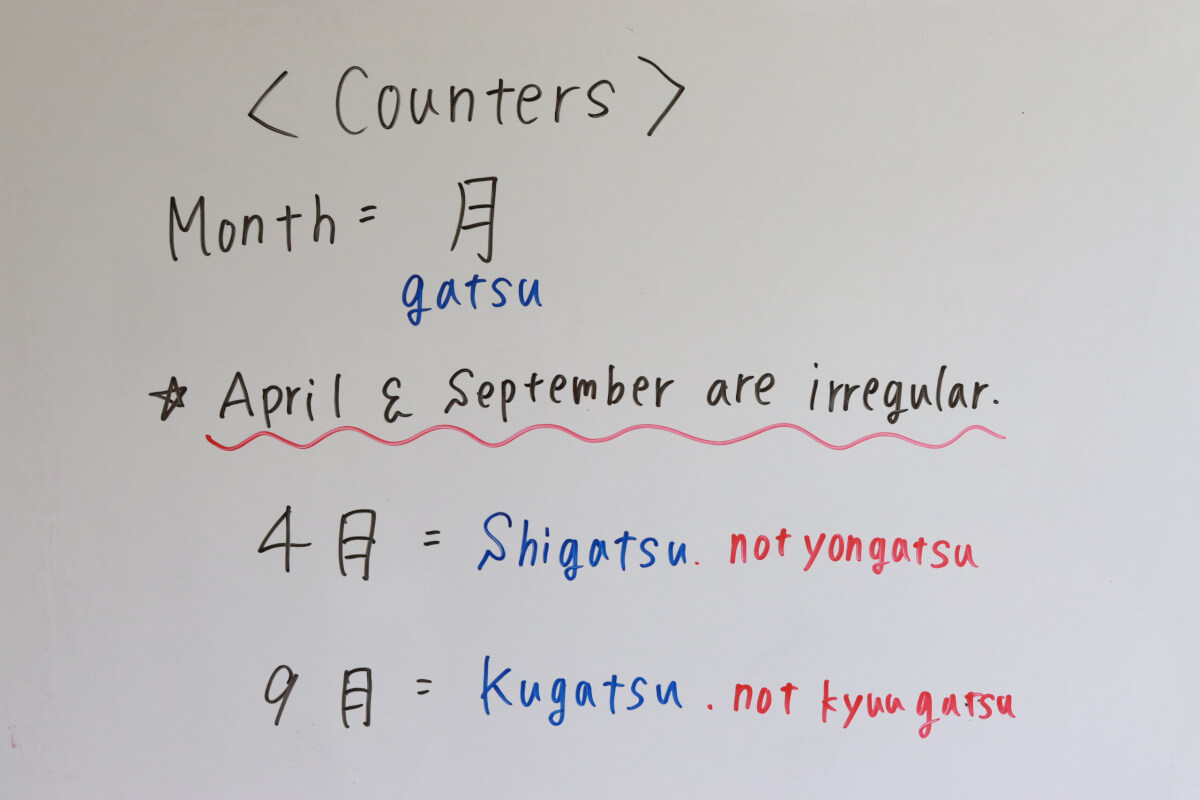 < Counters >
Month = 月
gatsu
☆ April & September are irregular.
4月 = Shigatsu. not yongatsu
9月 = Kugatsu. not kyuugatsu